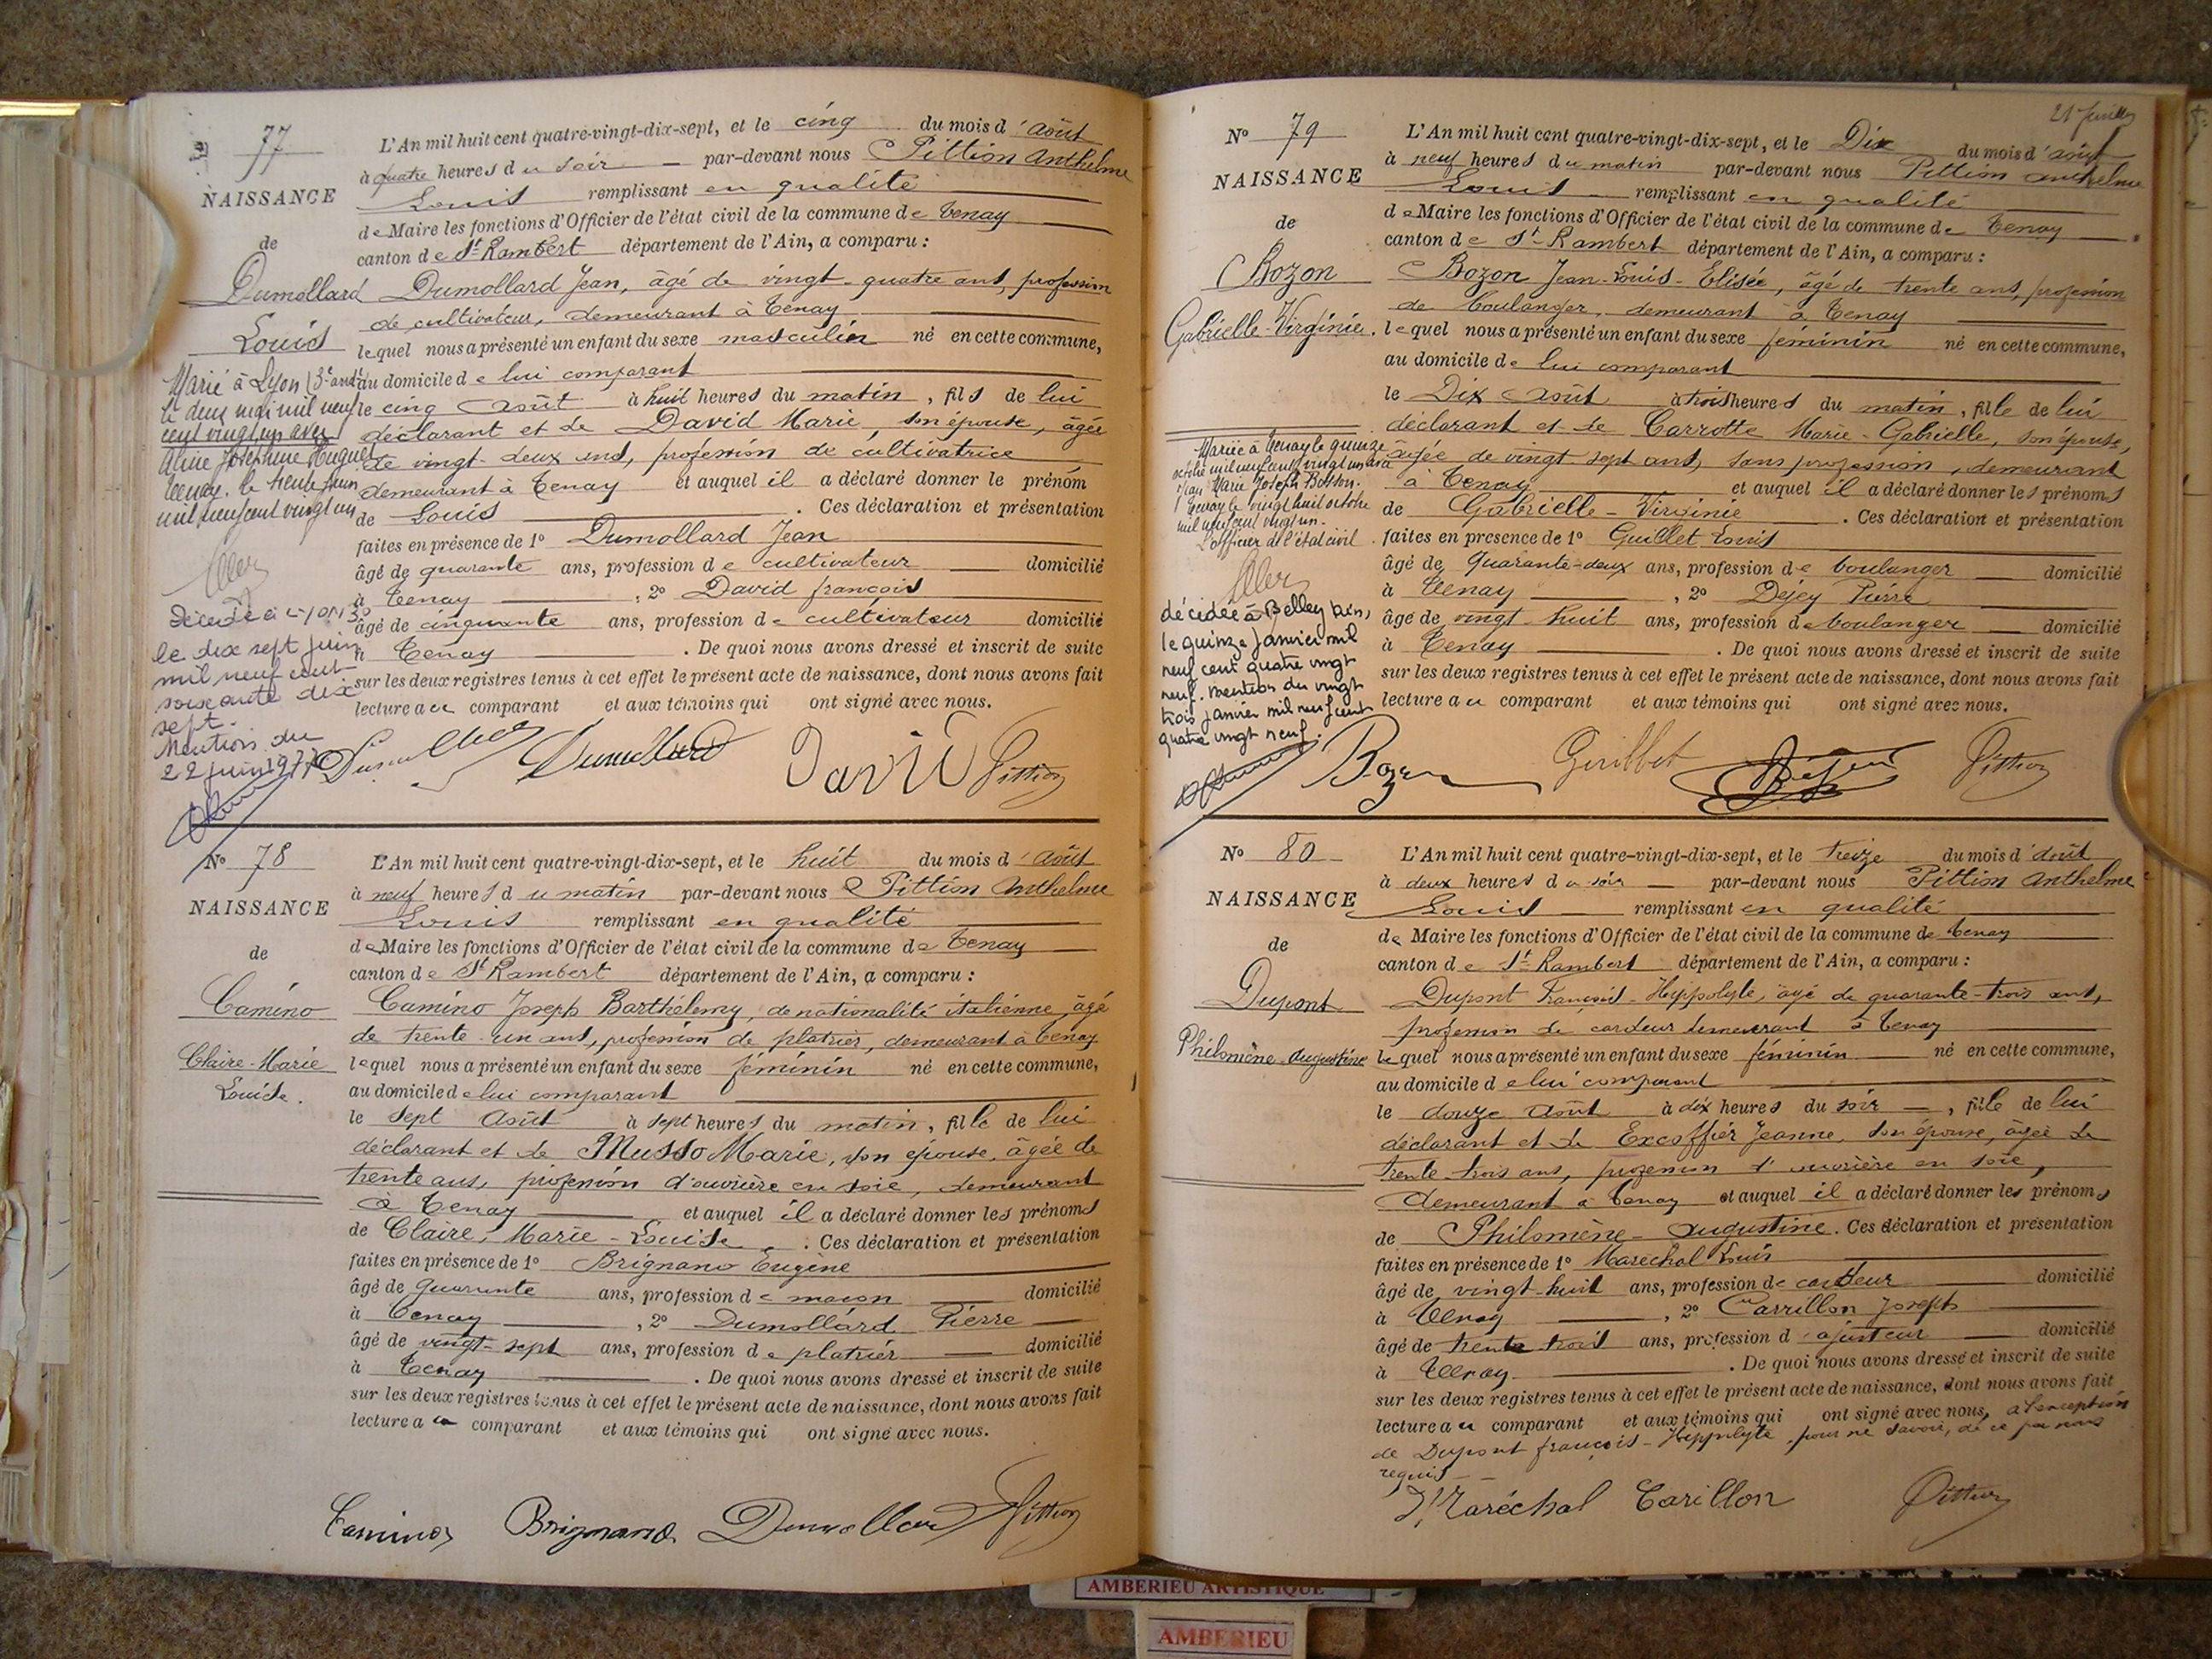 77
NAISSANCE
de
Dumollard
Louis
Marié à Lyon (3e arrt)
le deux mai mil neuf
cent vingt un avec
Aline Joséphine Huguet
Tenay, le trente juin
mil neuf cent vingt un
Décédé à Lyon 3e
le dix sept juin
mil neuf cent
soixante dix
sept.
Mention du
22 juin 1977
L'An mil huit cent quatre-vingt-dix-sept, et le cinq du mois d'août
à quatre heures du soir — par-devant nous Pittion Anthelme
Louis remplissant en qualité
de Maire les fonctions d'Officier de l'état civil de la commune de Tenay
canton de St-Rambert département de l'Ain, a comparu :
Dumollard Jean, âgé de vingt-quatre ans, profession
de cultivateur, demeurant à Tenay
lequel nous a présenté un enfant du sexe masculin né en cette commune,
au domicile de lui comparant
le cinq août à huit heures du matin, fils de lui
déclarant et de David Marie, son épouse, âgée
de vingt-deux ans, profession de cultivatrice
demeurant à Tenay et auquel il a déclaré donner le prénom
de Louis. Ces déclaration et présentation
faites en présence de 1° Dumollard Jean
âgé de quarante ans, profession de cultivateur — domicilié
à Tenay, 2° David françois
âgé de cinquante ans, profession de cultivateur domicilié
à Tenay. De quoi nous avons dressé et inscrit de suite
sur les deux registres tenus à cet effet le présent acte de naissance, dont nous avons fait
lecture au comparant et aux témoins qui ont signé avec nous.
Dumollard Dumollard David Pittion
N° 78
NAISSANCE
de
Camino
Claire-Marie
Louise.
L'An mil huit cent quatre-vingt-dix-sept, et le huit du mois d'août
à neuf heures du matin par-devant nous Pittion Anthelme
Louis remplissant en qualité
de Maire les fonctions d'Officier de l'état civil de la commune de Tenay
canton de St Rambert département de l'Ain, a comparu :
Camino Joseph Barthélemy, de nationalité italienne, âgé
de trente-un ans, profession de platrier, demeurant à Tenay
lequel nous a présenté un enfant du sexe féminin né en cette commune,
au domicile de lui comparant
le sept Août à sept heures du matin, fille de lui
déclarant et de Musso Marie, son épouse, âgée de
trente ans, profession d'ouvrière en soie, demeurant
à Tenay et auquel il a déclaré donner les prénoms
de Claire, Marie-Louise. Ces déclaration et présentation
faites en présence de 1° Brignano Eugène
âgé de quarante ans, profession de macon domicilié
à Tenay, 2° Dumollard Pierre
âgé de vingt-sept ans, profession de platrier domicilié
à Tenay. De quoi nous avons dressé et inscrit de suite
sur les deux registres tenus à cet effet le présent acte de naissance, dont nous avons fait
lecture au comparant et aux témoins qui ont signé avec nous.
Camino Brignano Dumollard Pittion
N° 79
NAISSANCE
de
Bozon
Gabrielle-Virginie.
Mariée à Tenay le quinze
octobre mil neuf cent vingt un avec
Jean Marie Joseph Botton.
Tenay le vingt huit octobre
mil neuf cent vingt un.
L'officier de l'état civil
décédée à Belley Ain,
le quinze janvier mil
neuf cent quatre vingt
neuf. Mention du vingt
trois janvier mil neuf cent
quatre vingt neuf.
L'An mil huit cent quatre-vingt-dix-sept, et le Dix du mois d'août
à neuf heures du matin par-devant nous Pittion Anthelme
Louis remplissant en qualité
de Maire les fonctions d'Officier de l'état civil de la commune de Tenay
canton de St-Rambert département de l'Ain, a comparu :
Bozon Jean-Louis-Elisée, âgé de trente ans, profession
de boulanger, demeurant à Tenay
lequel nous a présenté un enfant du sexe féminin né en cette commune,
au domicile de lui comparant
le Dix Août à trois heures du matin, fille de lui
déclarant et de Carrotte Marie-Gabrielle, son épouse,
âgée de vingt-sept ans, sans profession, demeurant
à Tenay et auquel il a déclaré donner les prénoms
de Gabrielle-Virginie. Ces déclaration et présentation
faites en présence de 1° Guillet Louis
âgé de quarante-deux ans, profession de boulanger domicilié
à Tenay, 2° Déjey Pierre
âgé de vingt-huit ans, profession de boulanger domicilié
à Tenay. De quoi nous avons dressé et inscrit de suite
sur les deux registres tenus à cet effet le présent acte de naissance, dont nous avons fait
lecture au comparant et aux témoins qui ont signé avec nous.
Bozon Guillet Déjey Pittion
N° 80
NAISSANCE
de
Dupont
Philomène-Augustine
L'An mil huit cent quatre-vingt-dix-sept, et le treize du mois d'août
à deux heures du soir — par-devant nous Pittion Anthelme
Louis remplissant en qualité
de Maire les fonctions d'Officier de l'état civil de la commune de Tenay
canton de St-Rambert département de l'Ain, a comparu :
Dupont François-Hyppolyte, âgé de quarante-trois ans,
profession de cardeur demeurant à Tenay
lequel nous a présenté un enfant du sexe féminin né en cette commune,
au domicile de lui comparant
le douze août à dix heures du soir —, fille de lui
déclarant et de Excoffier Jeanne, son épouse, âgée de
trente-trois ans, profession d'ouvrière en soie,
demeurant à Tenay et auquel il a déclaré donner les prénoms
de Philomène-Augustine. Ces déclaration et présentation
faites en présence de 1° Maréchal Louis
âgé de vingt-huit ans, profession de cardeur domicilié
à Tenay, 2° Carrillon Joseph
âgé de trente trois ans, profession d'ajusteur domicilié
à Tenay. De quoi nous avons dressé et inscrit de suite
sur les deux registres tenus à cet effet le présent acte de naissance, dont nous avons fait
lecture au comparant et aux témoins qui ont signé avec nous, à l'exception
de Dupont françois-Hyppolyte, pour ne savoir, de ce par nous
requis
Maréchal Carillon Pittion
AMBERIEU ARTISTIQUE
AMBERIEU